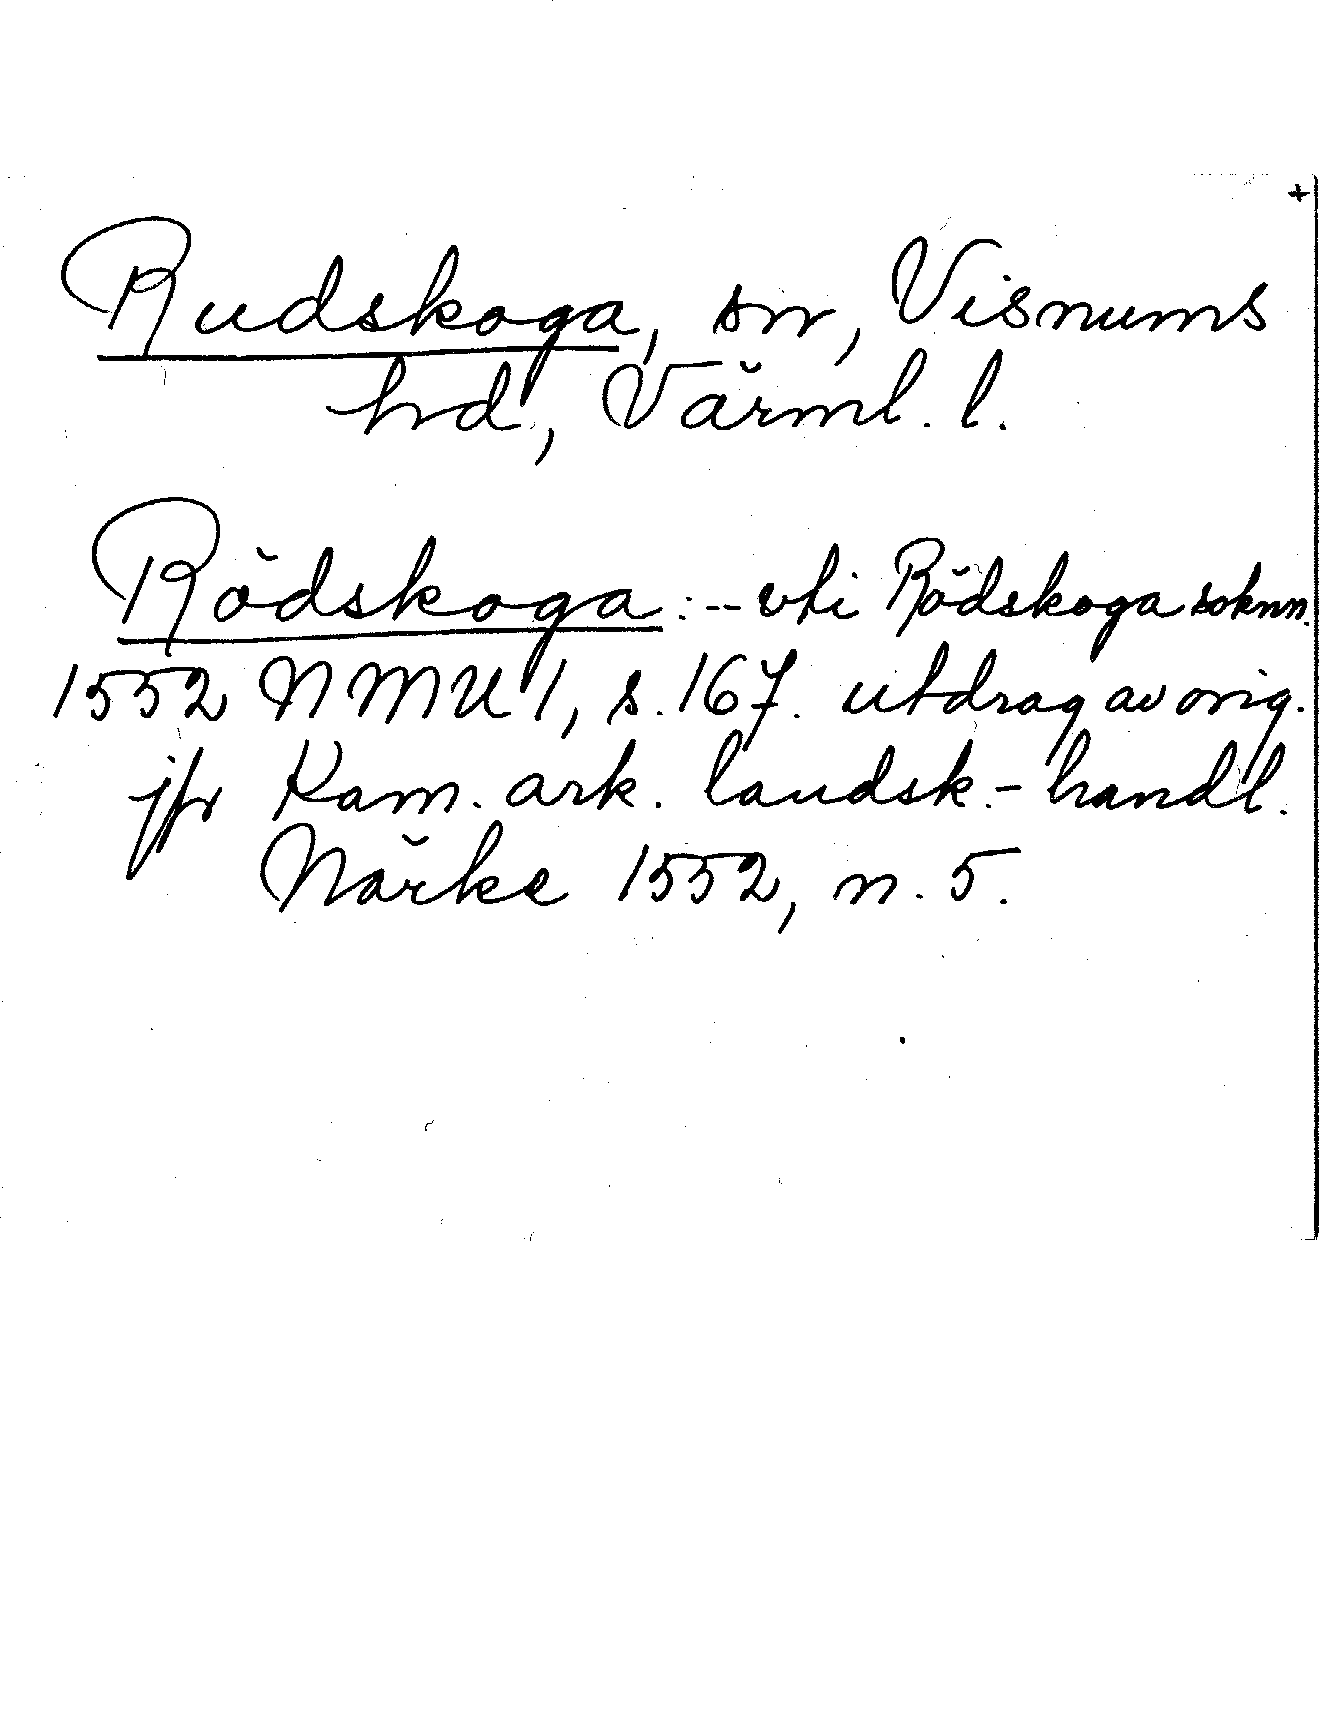 +
Rudskoga, sn, Visnums
hd, Värml. l.
Rödskoga: -- vti Rödskoga soknn.
1552 NMU 1, s. 167. utdrag av orig.
jfr Kam. ark. landsk.-handl.
Närke 1552, n. 5.